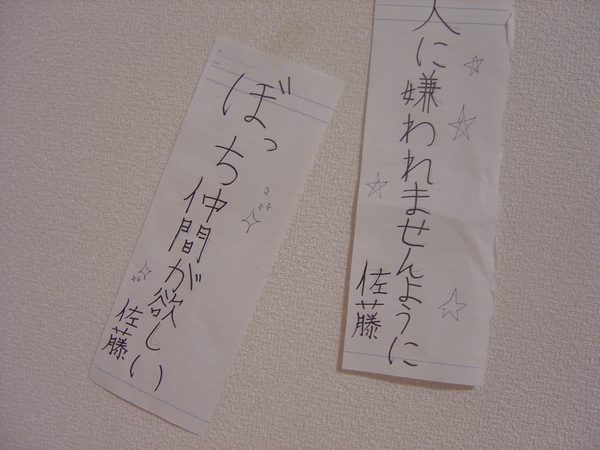 人に嫌われませんように
佐藤
ぼっち仲間が欲しい
佐藤